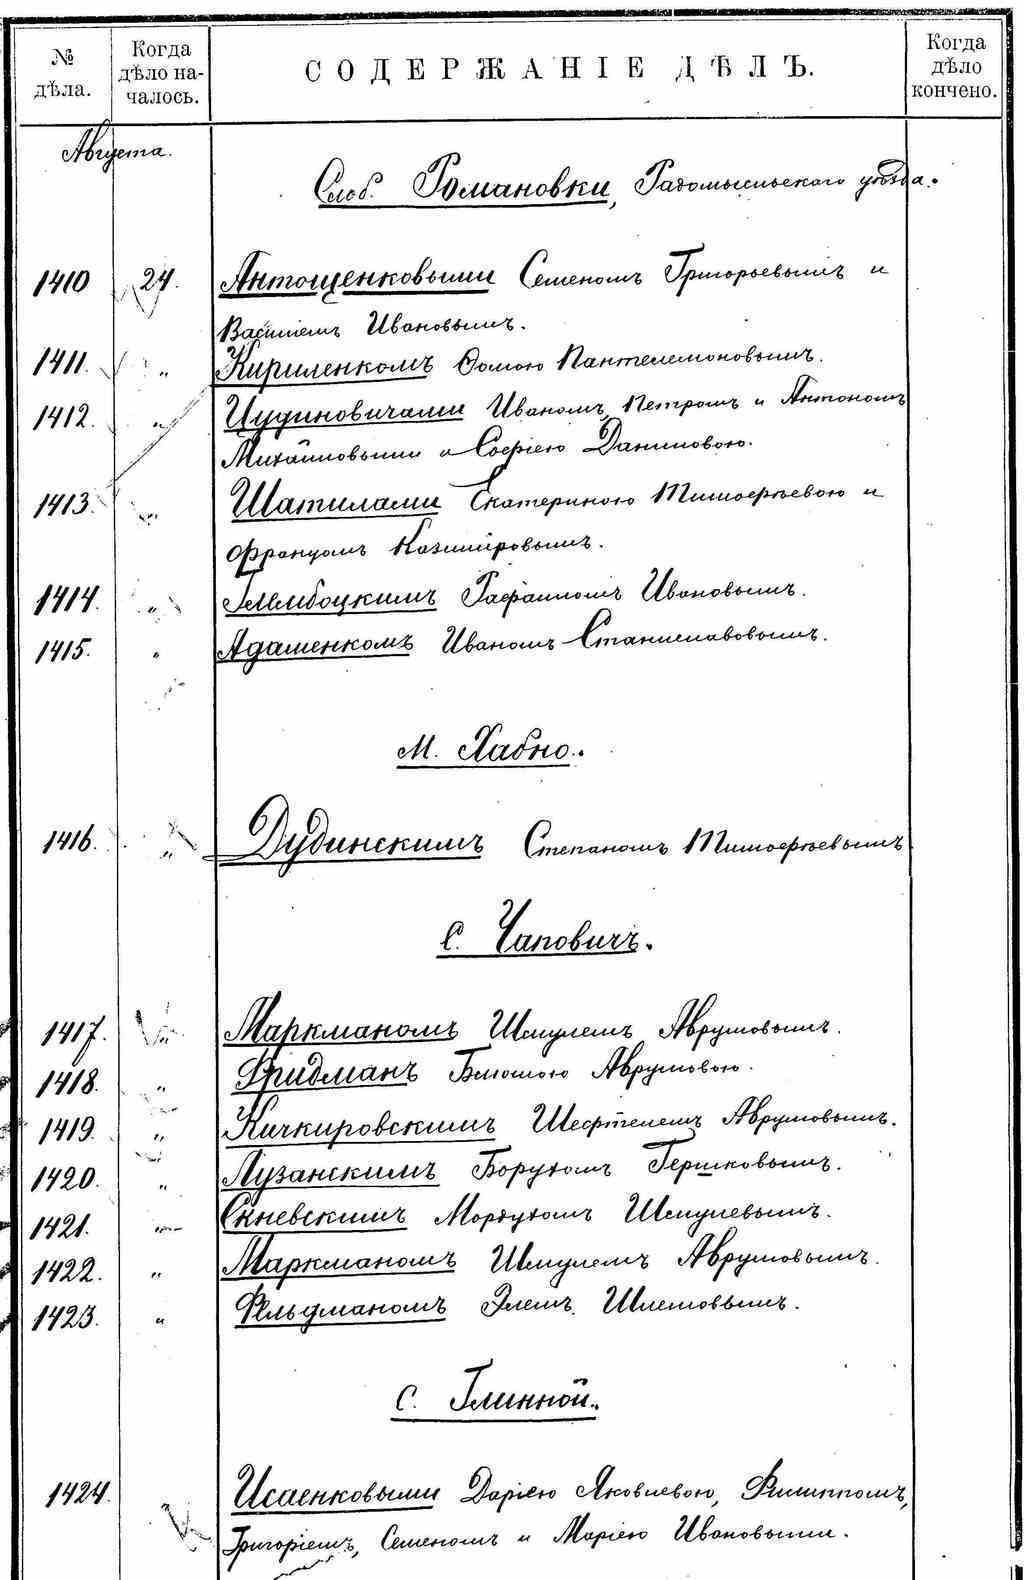 № дѣла.
Когда дѣло на-чалось.
СОДЕРЖАНІЕ ДѢЛЪ.
Когда дѣло кончено.
Августа.
Слоб. Романовки, Радомысльскаго уѣзда.
1410 24. Антощенковыми Семеномъ Григорьевымъ и
Василіемъ Ивановымъ.
1411. „ Кириленкомъ Ѳомою Пантелемоновымъ.
1412. „ Цудиновичами Иваномъ, Петромъ и Антономъ
Михайловыми и Софіею Даниловою.
1413. „ Шатилами Екатериною Тимофѣевою и
Францомъ Казиміровымъ.
1414. „ Гембоцкимъ Рафаиломъ Ивановымъ.
1415. „ Адаменкомъ Иваномъ Станиславовымъ.
М. Хабно.
1416. „ Дудинскимъ Степаномъ Тимофѣевымъ
С. Чаповичъ.
1417. „ Маркманомъ Шмулемъ Аврумовымъ.
1418. „ Фридманъ Блюмою Аврумовою.
1419. „ Кичкировскимъ Шефтелемъ Аврумовымъ.
1420. „ Лузанскимъ Борухомъ Гершковымъ.
1421. „ Скневскимъ Мордухомъ Шмулевымъ.
1422. „ Маркманомъ Шмулемъ Аврумовымъ.
1423. „ Фельдманомъ Элемъ Шлемовымъ.
С. Глинной.
1424. Исаенковыми Даріею Яковлевою, Филиппомъ,
Григоріемъ, Семеномъ и Маріею Ивановыми.